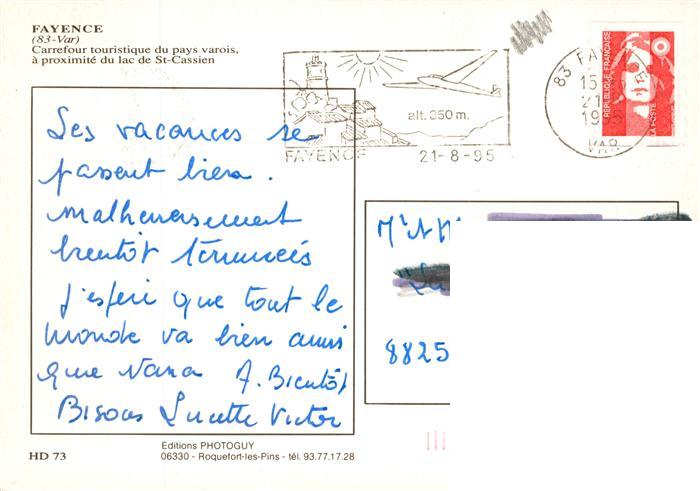 FAYENCE
(83-Var)
Carrefour touristique du pays varois,
à proximité du lac de St-Cassien
alt. 350 m.
FAYENCE 21-8-95
83 FA
15
21
19
VAR
REPUBLIQUE FRANÇAISE
LA POSTE
Les vacances se
passent bien.
malheureusement
bientôt terminées
J'espère que tout le
monde va bien ainsi
que Nana A. Bientôt
Bisous Lucette Victor
8825
Editions PHOTOGUY
HD 73
06330 - Roquefort-les-Pins - tél. 93.77.17.28